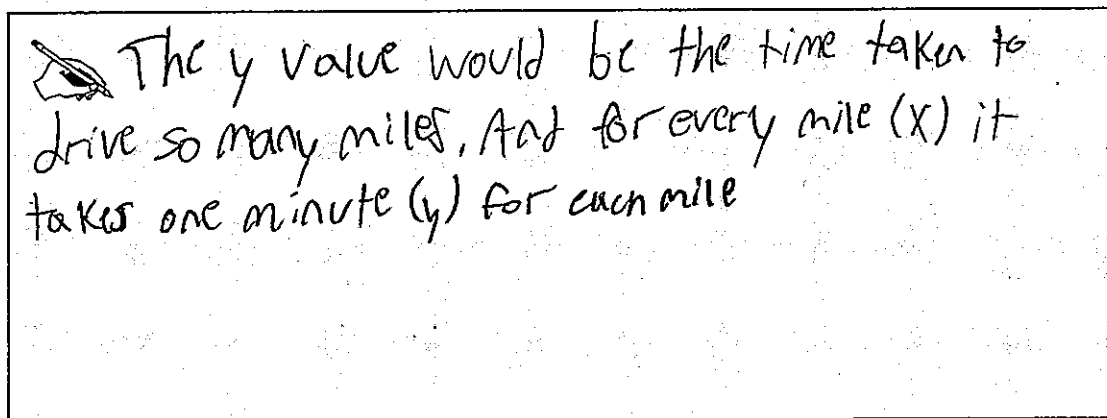 The y value would be the time taken to
drive so many miles, And for every mile (x) it
takes one minute (y) for each mile